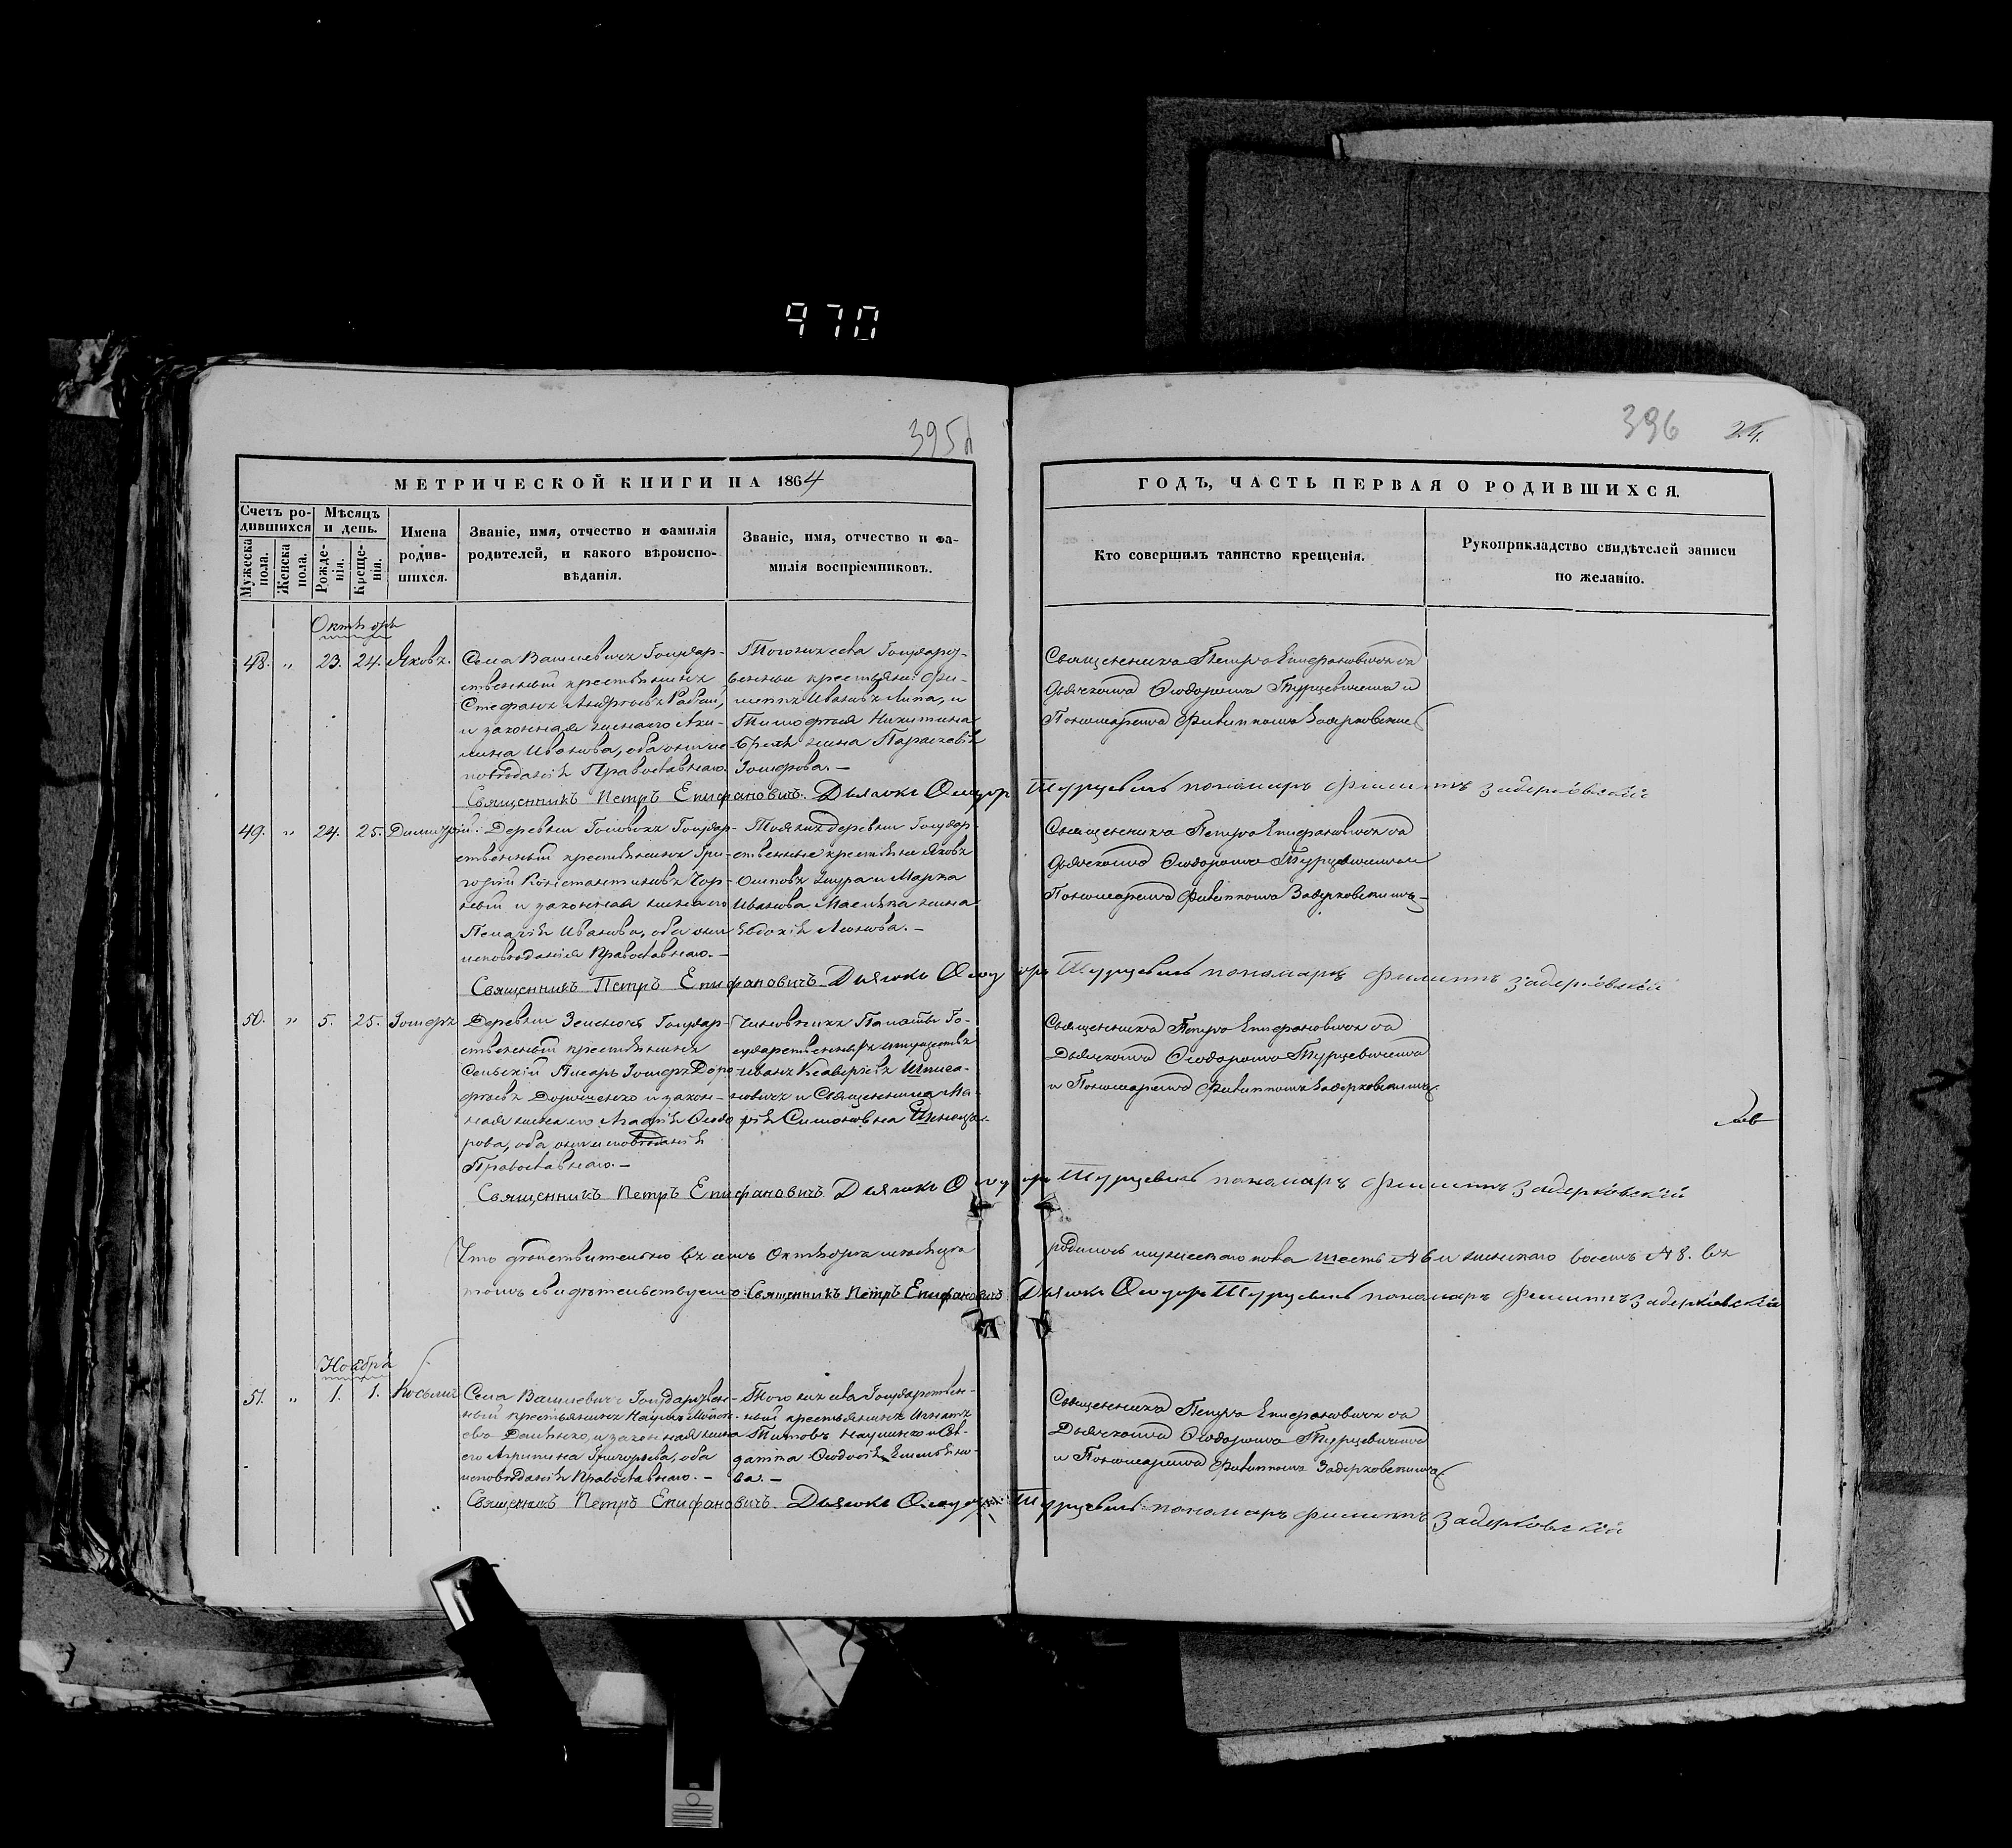 970
395
396
24.
МЕТРИЧЕСКОЙ КНИГИ НА 1864
Счетъ ро-
дившихся
Мужеска
пола.
Женска
пола.
Мѣсяцъ
и день.
Рожде-
нія.
Креще-
нія.
Имена
родив-
шихся.
Званіе, имя, отчество и фамилія
родителей, и какого вѣроиспо-
вѣданія.
Званіе, имя, отчество и фа-
милія воспріемниковъ.
ГОДЪ, ЧАСТЬ ПЕРВАЯ О РОДИВШИХСЯ.
Кто совершилъ таинство крещенія.
Рукоприкладство свидѣтелей записи
по желанію.
Октябрь
48. „ 23. 24. Яковъ.
Села Вашневичь Государ-
ственный крестьянинъ
Стефанъ
и законная жена его Аки-
лина Иванова, оба они ис-
повѣданія Православнаго.
Тогожъ села Государ-
Иванъ Липа, и
Тимофея Никитина
жена Параскевія
Іосифова. —
Священникъ Петръ Епифановичъ съ
Дьячкомъ Ѳеодоромъ Турцевичемъ и
Пономаремъ Филиппомъ Задерковскимъ
Священникъ Петръ Епифановичъ. Дьячокъ Ѳеодоръ Турцевичъ пономарь Филиппъ Задерковскій
49. „ 24. 25. Димитрій.
Деревни Государ-
ственный крестьянинъ Гри-
горій Константиновъ Чор-
ный и законная жена его
Пелагія Иванова, оба они
исповѣданія Православнаго. —
Тояжъ деревни Государ-
ственные крестьяне Яковъ
Осиповъ и Марка
Иванова жена
Евдокія —
Священникъ Петръ Епифановичъ съ
Дьячкомъ Ѳеодоромъ Турцевичемъ и
Пономаремъ Филиппомъ Задерковскимъ
Священникъ Петръ Епифановичъ Дьячокъ Ѳеодоръ Турцевичъ пономарь Филиппъ Задерковскій
50. „ 5. 25. Іосифъ
Деревни Государ-
ственный крестьянинъ
Сельскій Писарь Іосифъ Доро-
фѣевъ и закон-
ная жена его Агафія Ѳеодо-
рова, оба они исповѣданія
Православнаго. —
Чиновникъ Палаты Го-
сударственныхъ имуществъ
Иванъ
и Священница Ма-
рія Симоновна
Священникъ Петръ Епифановичъ съ
Дьячкомъ Ѳеодоромъ Турцевичемъ
и Пономаремъ Филиппомъ Задерковскимъ
Священникъ Петръ Епифановичъ Дьячокъ Ѳеодоръ Турцевичъ пономарь Филиппъ Задерковскій
Что дѣйствительно въ семъ Октябрѣ мѣсяцѣ родилось мужескаго пола шесть № 6 и женскаго восемь № 8. въ
томъ свидѣтельствуемъ: Священникъ Петръ Епифановичъ Дьячокъ Ѳеодоръ Турцевичъ пономарь Филиппъ Задерковскій
Ноябрь
51. „ 1. 1. Косьма
Села Вашневичь Государствен-
ный крестьянинъ Наумъ
и законная жена
его Агрипина Григорьева, оба
исповѣданія Православнаго. —
Тогожъ села Государствен-
ный крестьянинъ Игнатъ
Титовъ
Ѳеодосія Емельяно-
ва. —
Священникъ Петръ Епифановичъ съ
Дьячкомъ Ѳеодоромъ Турцевичемъ
и Пономаремъ Филиппомъ Задерковскимъ
Священникъ Петръ Епифановичъ. Дьячокъ Ѳеодоръ Турцевичъ пономарь Филиппъ Задерковскій